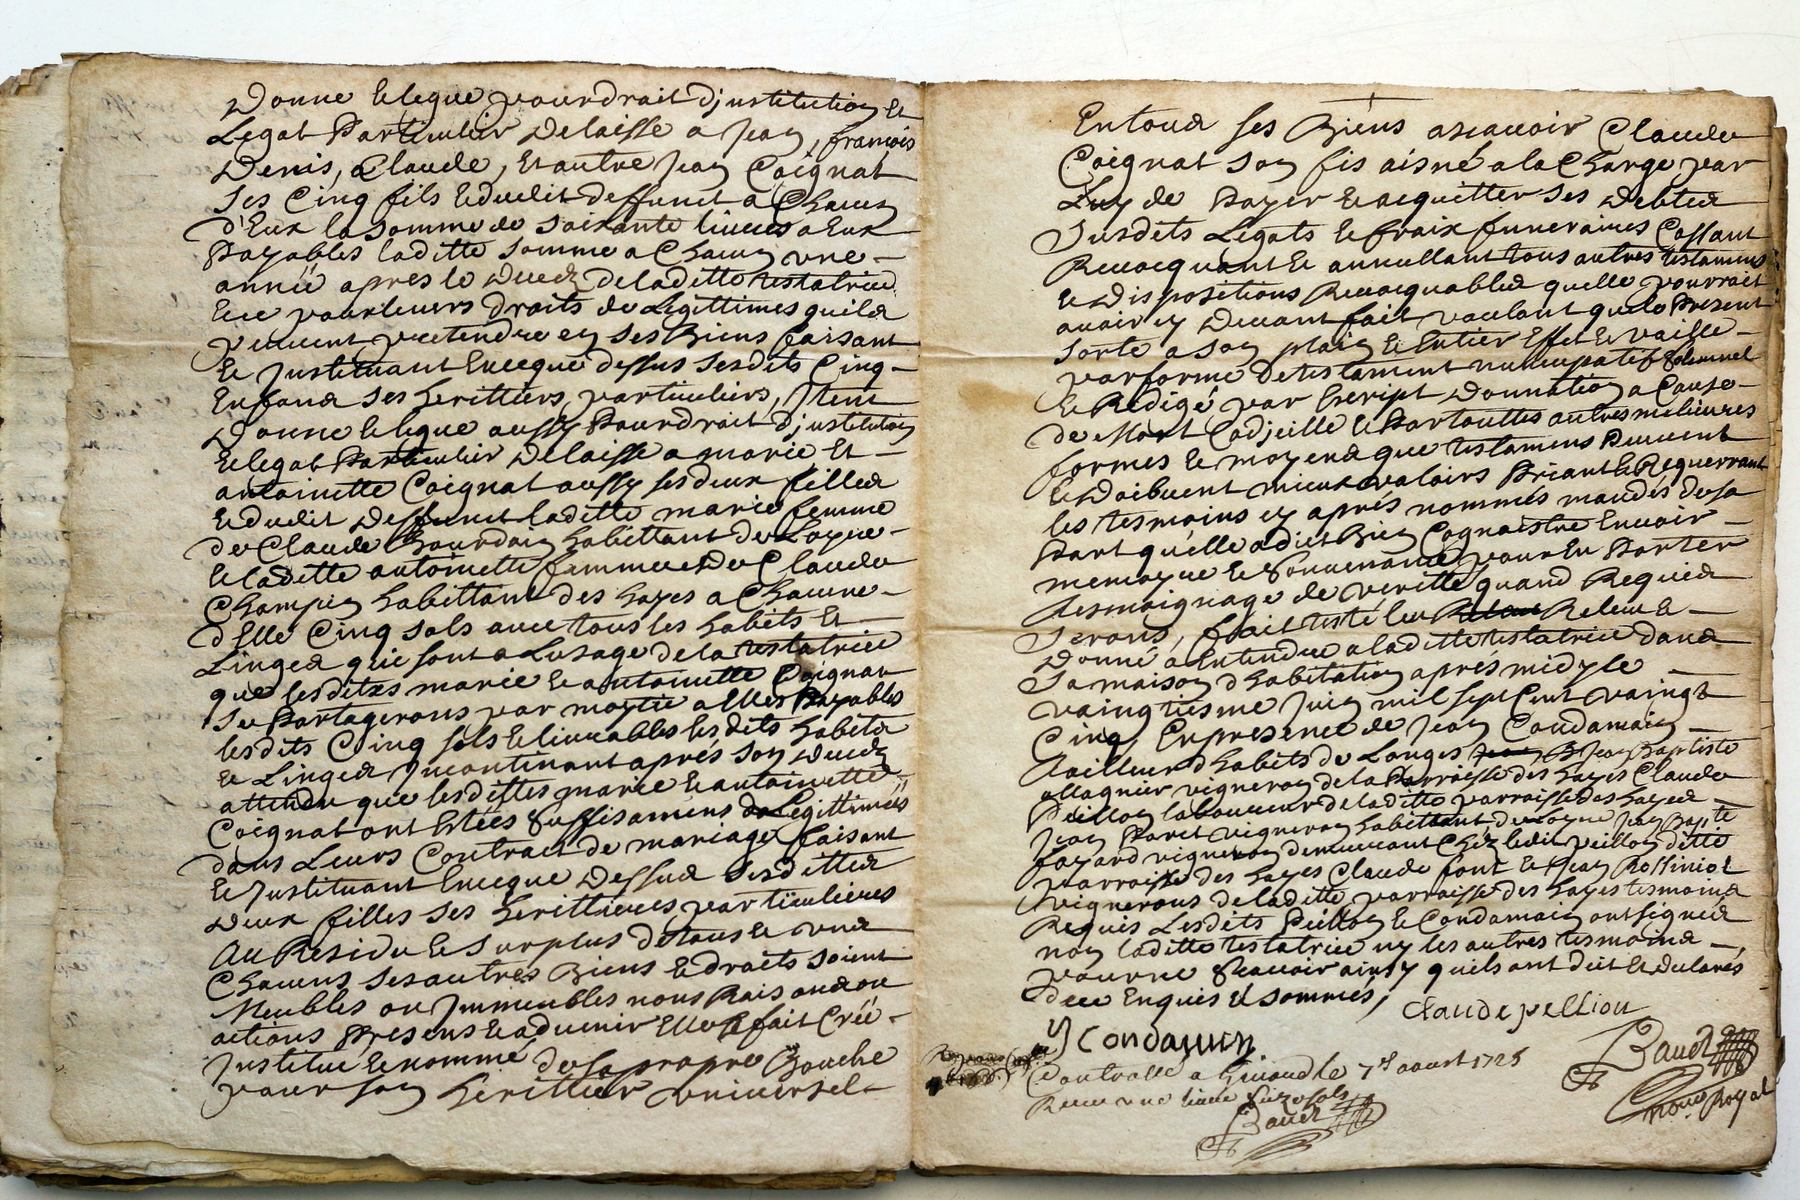 Donne & legue pour droit d'jnstitution &
Legat Particulier delaisse a Jean, françois
Denis, Claude, & autre Jean Coignat
ses Cinq fils & dudit deffunct a Chacun
d'Eux la somme de soixante liures a Eux
Payables laditte somme a Chacun vne
année apres le decedz de laditte testatrice
& ce pour leurs droits de Legittimes quils
peuuent pretendre en ses Biens faisant
& Jnstituant Encequé dessus sesdits Cinq
Enfans ses herittiers particuliers, Jtem
Donne & legue aussy Pour droit d'jnstitution
& legat Particulier delaisse a marie Et
antoinette Coignat aussy ses deux filles
& dudit deffunct laditte marie femme
de Claude Bourdain habittant de Loyre
& laditte antoinette femme de Claude
Champin habittant des hayes a Chacune
d'Elle Cinq sols auec tous les habits Et
Linges qui sont a Lusage de la testatrice
que lesdites marie & antoinette Coignat
se Partagerons par moytié a Elles Payables
lesdits Cinq sols & liurables lesdits habits
& Linges Jncontinant aprés son decedz
attendu que lesdittes marie & antoinette
Coignat ont Estées suffisamens Legittimées
dans Leurs Contract de mariage faisant
& Jnstituant Encequé dessus sesdittes
deux filles ses herittieres particulieres
Au Residu & surplus de tous & vns
Chacuns ses autres Biens & droits soient
Meubles ou Jmmeubles noms Raisons ou
actions Presens & aduenir Elle a fait Créé
Jnstitue & nommé de sa propre Bouche
pour son herittier vniuersel
En tous ses Biens ascauoir Claude
Coignat son fis aisné a la Charge par
Luy de Payer & acquitter ses debtes
susdits Legats & fraix funeraires Cassant
Reuocquant & annullant tous autres testamens
& dispositions Reuocquables quelle pourrait
auoir cy deuant fait voulant que le Present
sorte a son plain & Entier Effet & vaille
par forme de testament nuncupatif solemnel
& Redigé par Escript donnation a Cause
de Mort Codjcille & Par touttes autres melieures
formes & moyens que testamens Peuuent
& doibuent mieux valoirs Priant & Requerrant
les tesmoins cy aprés nommés mandés de sa
Part qu'elle a dict Bien Cognaistre En auoir
memoyre & souuenance pour En Porter
tesmoignage de verité quand Requis
serons, fait testé leu Releu &
Donné a Entendre a laditte testatrice dans
sa maison d'habitation aprés midy le
vaingtiesme Juin mil sept Cent vaingt
Cinq, En presence de Jean Condamain
tailleur d'habits de Longes Jean Baptiste
allagnier vigneron de la Parroisse des hayes Claude
Peillon laboureur de laditte parroisse des hayes
Jean Paret vigneron habittant de Loyre Jean Bapte
fayard vigneron demeurant Chéz ledit peillon ditte
parroisse des hayes Claude font & Jean Rossiniol
vignerons de laditte parroisse des hayes tesmoins
Requis Lesdits Peillon & Condamain ont signés
non laditte testatrice ny les autres tesmoins
pour ne scauoir ainsy quils ont dit & declarés
de ce Enquis & sommés,
Claude pellion
J Condamin
Baudz
Controllé a Giuord le 7e aoust 1725
Receu vne liure sols
Baudz
nore Royal